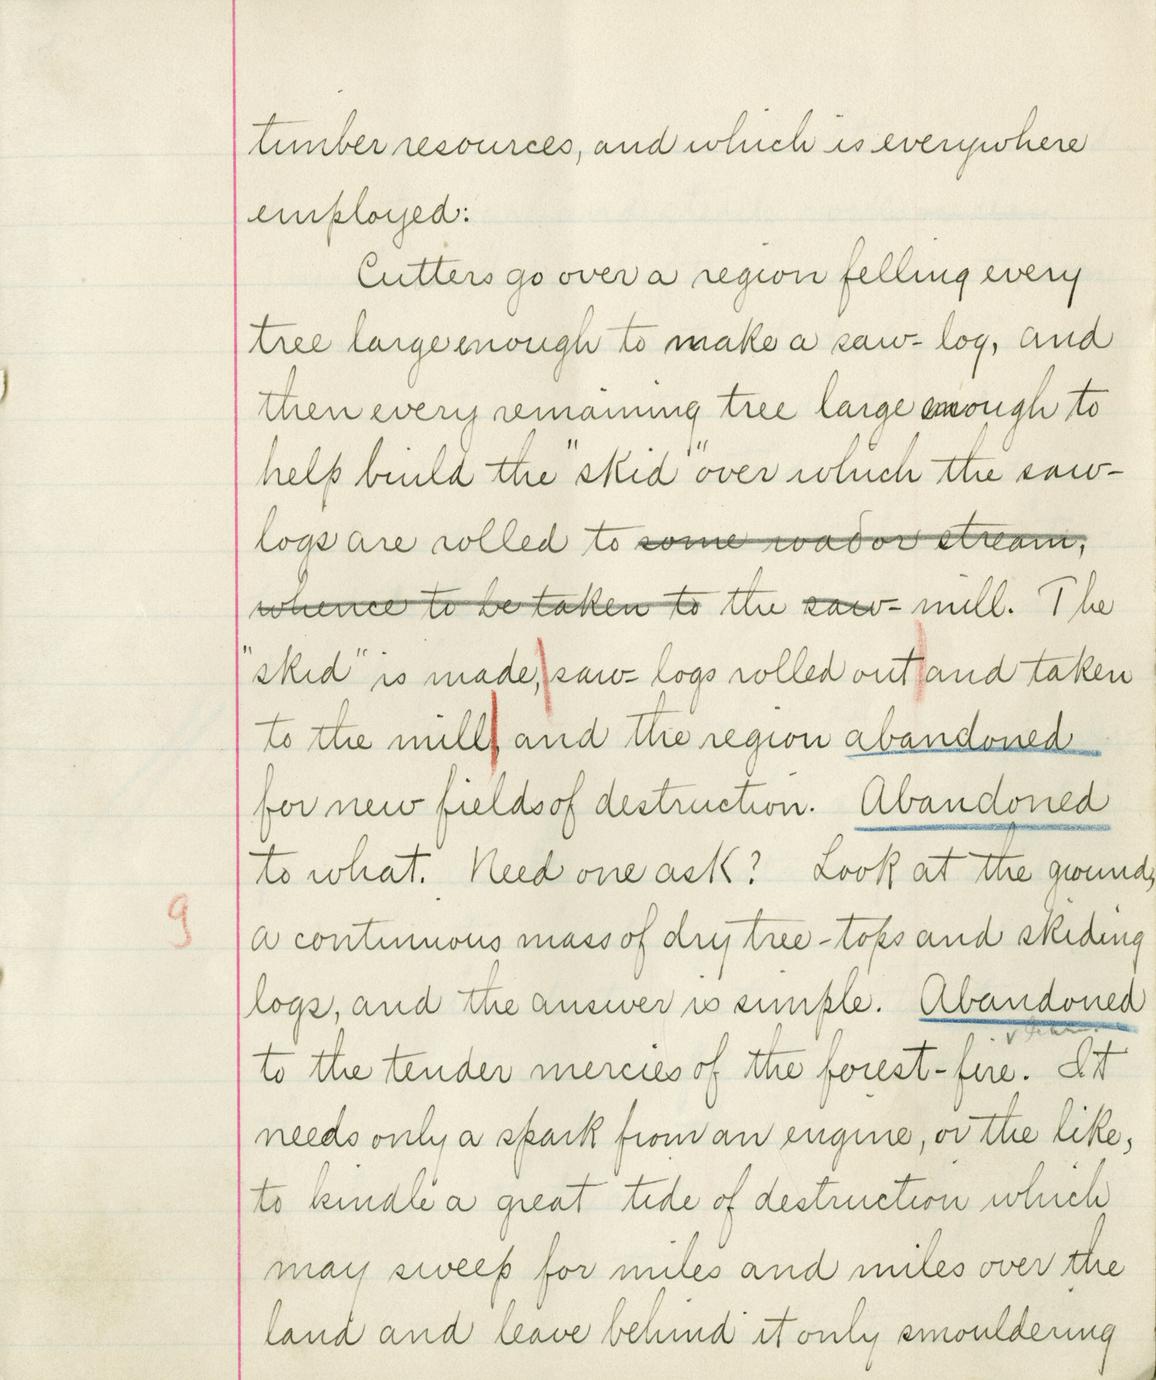 timber resources, and which is everywhere
employed:
Cutters go over a region felling every
tree large enough to make a saw-log, and
then every remaining tree large enough to
help build the "skid" over which the saw-
logs are rolled to some road or stream,
whence to be taken to the saw-mill. The
"skid" is made, saw-logs rolled out and taken
to the mill, and the region abandoned
for new fields of destruction. Abandoned
to what. Need one ask? Look at the ground,
9
a continuous mass of dry tree-tops and skiding
logs, and the answer is simple. Abandoned
to the tender mercies of the forest-fire. It
needs only a spark from an engine, or the like,
to kindle a great tide of destruction which
may sweep for miles and miles over the
land and leave behind it only smouldering